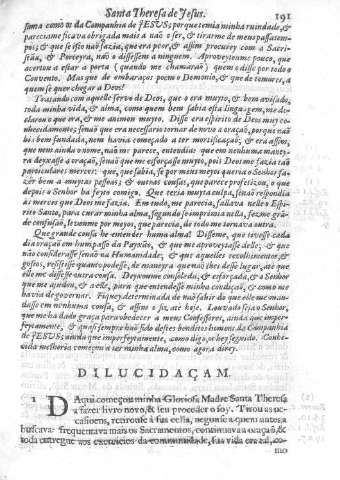 Santa Theresa de Jesus. 191
sima como os da Companhia de JESUS; porque temia minha ruindade, &
pareciame ficava obrigada mais a não o ser, & tirarme de meus passatem-
pos; & que se isto não fazia, que era peor, & assim procurey com a Sacri-
stãa, & Porteyra, não o dissessem a ninguem. Aproveytoume pouco, que
acertou a estar a porta (quando me chamarão) quem o disse por todo o
Convento. Mas que de embaraços poem o Demonio, & que de temores, a
quem se quer chegar a Deos!
Tratando com aquelle servo de Deos, que o era muyto, & bem avisado,
toda minha vida, & alma, como quem bem sabia esta linguagem, me de-
clarou o que era, & me animou muyto. Disse era espirito de Deos muy co-
nhecidamente; senaõ que era necessario tornar de novo a oração, porque não
hia bem fundada, nem havia começado a ter mortificaçaõ, & era assim,
que nem ainda o nome, não me parece, entendia: que em nenhuma manei-
ra deyxasse a oração, senaõ que me esforçasse muyto, pois Deos me fazia taõ
particulares merces: que, que sabia, se por meus meyos queria o Senhor fa-
zer bem a muytas pessoas; & outras cousas, que parece profetizou, o que
depois o Senhor ha feyto comigo. Que teria muyta culpa, senaõ respondia
as merces que Deos me fazia. Em tudo, me parecia, fallava nelle o Espi-
rito Santo, para curar minha alma, segundo se imprimia nella, fezme gran-
de confusaõ, levoume por meyos, que parecia, de todo me tornava outra.
Que grande cousa he entender huma alma! Disseme, que tivesse cada
dia oração em hum passo da Payxão, & que me aproveytasse delle, & que
não considerasse senaõ na Humanidade, & que aquelles recolhimentos, &
gostos, resistisse quanto podesse, de maneyra que naõ lhes desse lugar, até que
elle me dissesse outra cousa. Deyxoume consolada, & esforçada, & o Senhor
que me ajudou, & a elle, para que entendesse minha condição, & como me
havia de governar. Fiquey determinada de não sahir do que elle me man-
dasse em nenhuma cousa, & assim o fiz, até hoje. Louvado seja o Senhor,
que me ha dado graça para obedecer a meus Confessores, ainda que imper-
feytamente, & quasi sempre haõ sido destes benditos homens da Companhia
de JESUS; ainda que imperfeytamente, como digo, os hey seguido. Conhe-
cida melhoria começou a ter minha alma, como agora direy.
DILUCIDAÇAM.
1 DAqui começou minha Gloriosa Madre Santa Theresa
a fazer livro novo, & seu proceder o foy. Tirou as oc-
casioens, retirouse á sua cella, negouse a quem antes a
buscava: frequentava mais os Sacramentos, continuava a oração, &
toda entregue aos exercicios da communidade, sua vida era tal, co-
mo